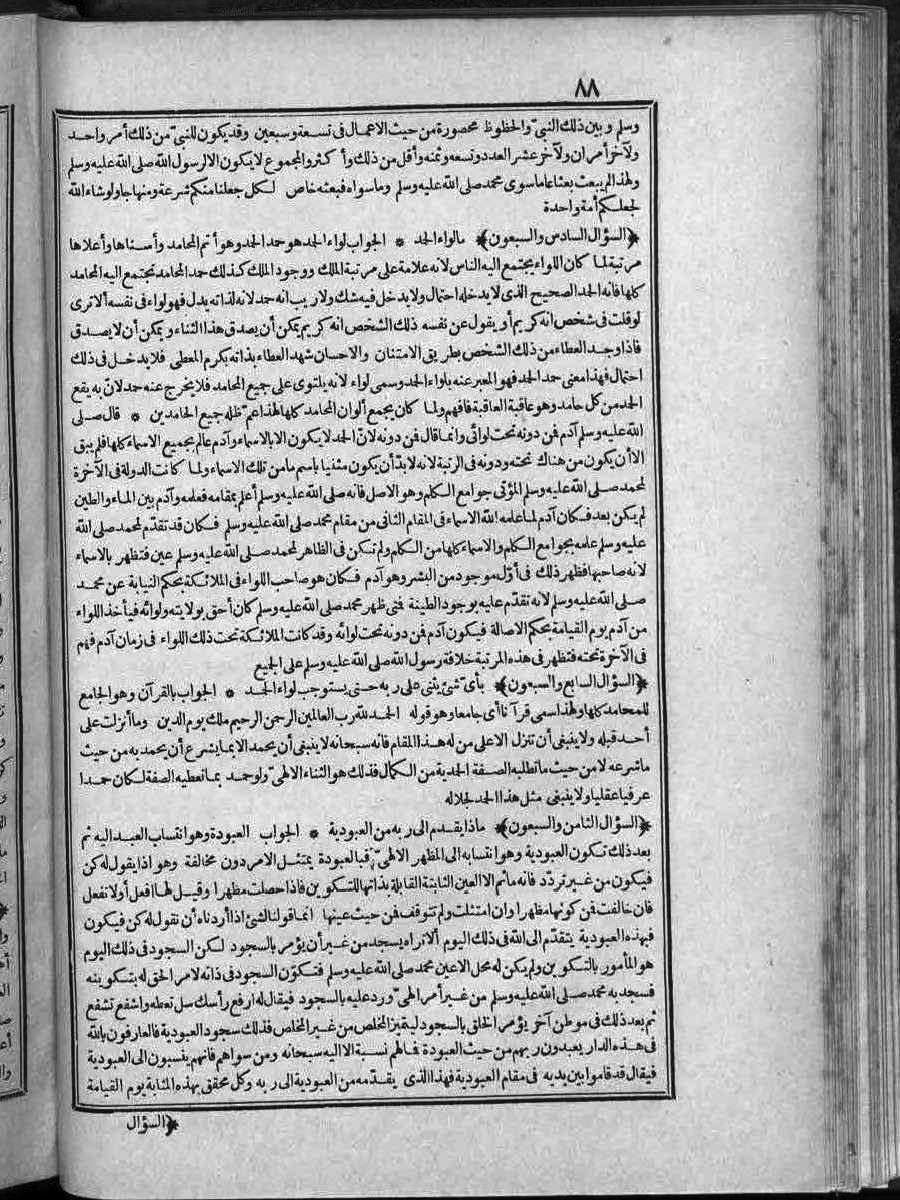 ٨٨
وسلم وبين ذلك النبي والحظوظ محصورة من حيث الاعمال فى تسعة وسبعين وقد يكون للنبى من ذلك أمر واحد
ولآخر أمران ولآخر عشر العدد وتسعه وثمنه وأقل من ذلك وأكثر والمجموع لا يكون الا لرسول الله صلى الله عليه وسلم
ولهذا لم يبعث بعثا عاما سوى محمد صلى الله عليه وسلم وما سواه فبعثه خاص لكل جعلنا منكم شرعة ومنهاجا ولو شاء الله
لجعلكم أمة واحدة
﴿السؤال السادس والسبعون﴾ ما لواء الحمد * الجواب لواء الحمد هو حمد الحمد وهو أتم المحامد وأسناها وأعلاها
مرتبة لما كان اللواء يجتمع اليه الناس لانه علامة على مرتبة الملك ووجود الملك كذلك حمد المحامد تجتمع اليه المحامد
كلها فانه الحمد الصحيح الذى لا يدخله احتمال ولا يدخل فيه شك ولا ريب انه حمد لانه لذاته يدل فهو لواء فى نفسه ألا ترى
لو قلت فى شخص انه كريم أو يقول عن نفسه ذلك الشخص انه كريم يمكن أن يصدق هذا الثناء ويمكن أن لا يصدق
فاذا وجد العطاء من ذلك الشخص بطريق الامتنان والاحسان شهد العطاء بذاته بكرم المعطى فلا يدخل فى ذلك
احتمال فهذا معنى حمد الحمد فهو المعبر عنه بلواء الحمد وسمى لواء لانه يلتوى على جميع المحامد فلا يخرج عنه حمد لان به يقع
الحمد من كل حامد وهو عاقبة العاقبة فافهم ولما كان يجمع ألوان المحامد كلها لهذا عم ظله جميع الحامدين * قال صلى
الله عليه وسلم آدم فمن دونه تحت لوائى وانما قال فمن دونه لان الحمد لا يكون الا بالاسماء وآدم عالم بجميع الاسماء كلها فلم يبق
الا أن يكون من هناك تحته ودونه فى الرتبة لانه لا بد أن يكون مثنيا باسم ما من تلك الاسماء ولما كانت الدولة فى الآخرة
لمحمد صلى الله عليه وسلم المؤتى جوامع الكلم وهو الاصل فانه صلى الله عليه وسلم أعلم بمقامه فعلمه وآدم بين الماء والطين
لم يكن بعد فكان آدم لما علمه الله الاسماء فى المقام الثانى من مقام محمد صلى الله عليه وسلم فكان قد تقدم لمحمد صلى الله
عليه وسلم علمه بجوامع الكلم والاسماء كلها من الكلم ولم تكن فى الظاهر لمحمد صلى الله عليه وسلم عين فتظهر بالاسماء
لانه صاحبها فظهر ذلك فى أول موجود من البشر وهو آدم فكان هو صاحب اللواء فى الملائكة بحكم النيابة عن محمد
صلى الله عليه وسلم لانه تقدم عليه بوجود الطينة فمتى ظهر محمد صلى الله عليه وسلم كان أحق بولايته ولوائه فيأخذ اللواء
من آدم يوم القيامة بحكم الاصالة فيكون آدم فمن دونه تحت لوائه وقد كانت الملائكة تحت ذلك اللواء فى زمان آدم فهم
فى الآخرة تحته فتظهر فى هذه المرتبة خلافة رسول الله صلى الله عليه وسلم على الجميع
﴿السؤال السابع والسبعون﴾ بأى شئ يثنى على ربه حتى يستوجب لواء الحمد * الجواب بالقرآن وهو الجامع
للمحامد كلها ولهذا سمى قرآنا أى جامعا وهو قوله الحمد لله رب العالمين الرحمن الرحيم ملك يوم الدين وما أنزلت على
أحد قبله ولا ينبغى أن تنزل الا على من له هذا المقام فانه سبحانه لا ينبغى أن يحمد الا بما يشرع أن يحمد به من حيث
ما شرعه لا من حيث ما تطلبه الصفة الحمدية من الكمال فذلك هو الثناء الالهى ولو حمد بما تعطيه الصفة لكان حمدا
عرفيا عقليا ولا ينبغى مثل هذا الحمد لجلاله
﴿السؤال الثامن والسبعون﴾ ماذا يقدم الى ربه من العبودية * الجواب العبودة وهو انتساب العبد اليه ثم
بعد ذلك تكون العبودية وهو انتسابه الى المظهر الالهى فبالعبودة يمتثل الامر دون مخالفة وهو اذا يقول له كن
فيكون من غير تردد فانه ما ثم الا العين الثابتة القابلة بذاتها للتكوين فاذا حصلت مظهرا وقيل لها افعل أو لا تفعل
فان خالفت فمن كونها مظهرا وان امتثلت ولم تتوقف فمن حيث عينها انما قولنا لشئ اذا أردناه أن نقول له كن فيكون
فبهذه العبودية يتقدم الى الله فى ذلك اليوم ألا تراه يسجد من غير أن يؤمر بالسجود لكن السجود فى ذلك اليوم
هو المأمور بالتكوين ولم يكن له محل الا عين محمد صلى الله عليه وسلم فتكون السجود فى ذاته لامر الحق له بتكوينه
فسجد به محمد صلى الله عليه وسلم من غير أمر الهى ورد عليه بالسجود فيقال له ارفع رأسك سل تعطه واشفع تشفع
ثم بعد ذلك فى موطن آخر يؤمر الخلق بالسجود ليتميز المخلص من غير المخلص فذلك سجود العبودية فالعارفون بالله
فى هذه الدار يعبدون ربهم من حيث العبودة فما لهم نسبة الا اليه سبحانه ومن سواهم فانهم ينسبون الى العبودية
فيقال قد قاموا بين يديه فى مقام العبودية فهذا الذى يقدمه من العبودية الى ربه وكل محقق بهذه المثابة يوم القيامة
﴿السؤال